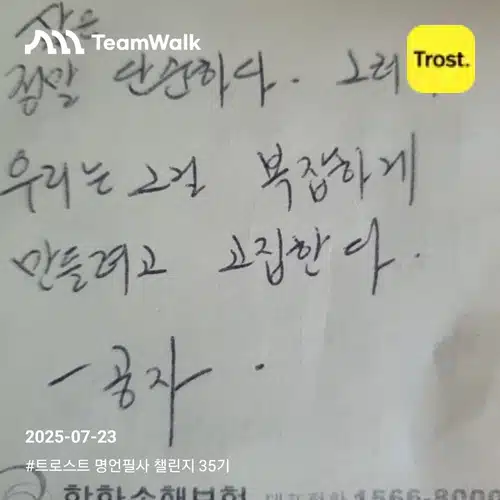 삶은
TeamWalk
Trost.
정말 단순하다. 그러
우리는 그걸 복잡하게
만들려고 고집한다.
- 공자 -
2025-07-23
#트로스트 명언필사 챌린지 35기
한화손해보험 대표전화 1566-8000